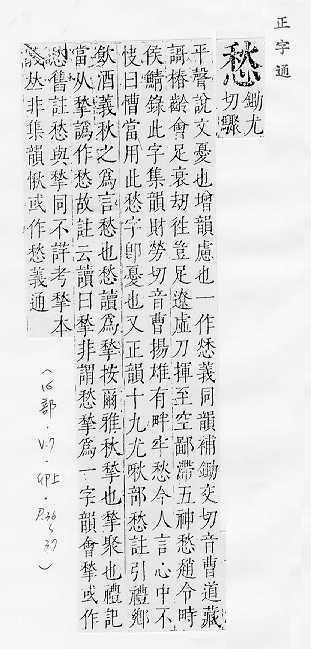 正字通
愁
鋤尤
切驟
平聲說文憂也增韻慮也一作愗義同韻補鋤交切音曹道藏
謌椿齡會足哀刼徃豈足遼虛刀揮至空鄙滯五神愁趙令時
侯鯖錄此字集韻財勞切音曹揚雄有畔牢愁今人言心中不
快曰慒當用此愁字卽憂也又正韻十九尤啾部愁註引禮鄕
飮酒義秋之爲言愁也愁讀爲揫按爾雅秋揫也揫聚也禮記
當从揫譌作愁故註云讀曰揫非謂愁揫爲一字韻會揫或作
愁舊註愁與揫同不詳考揫本
義𠀤非集韻愀或作愁義通
(心部·V.7·卯上·P.36~37)